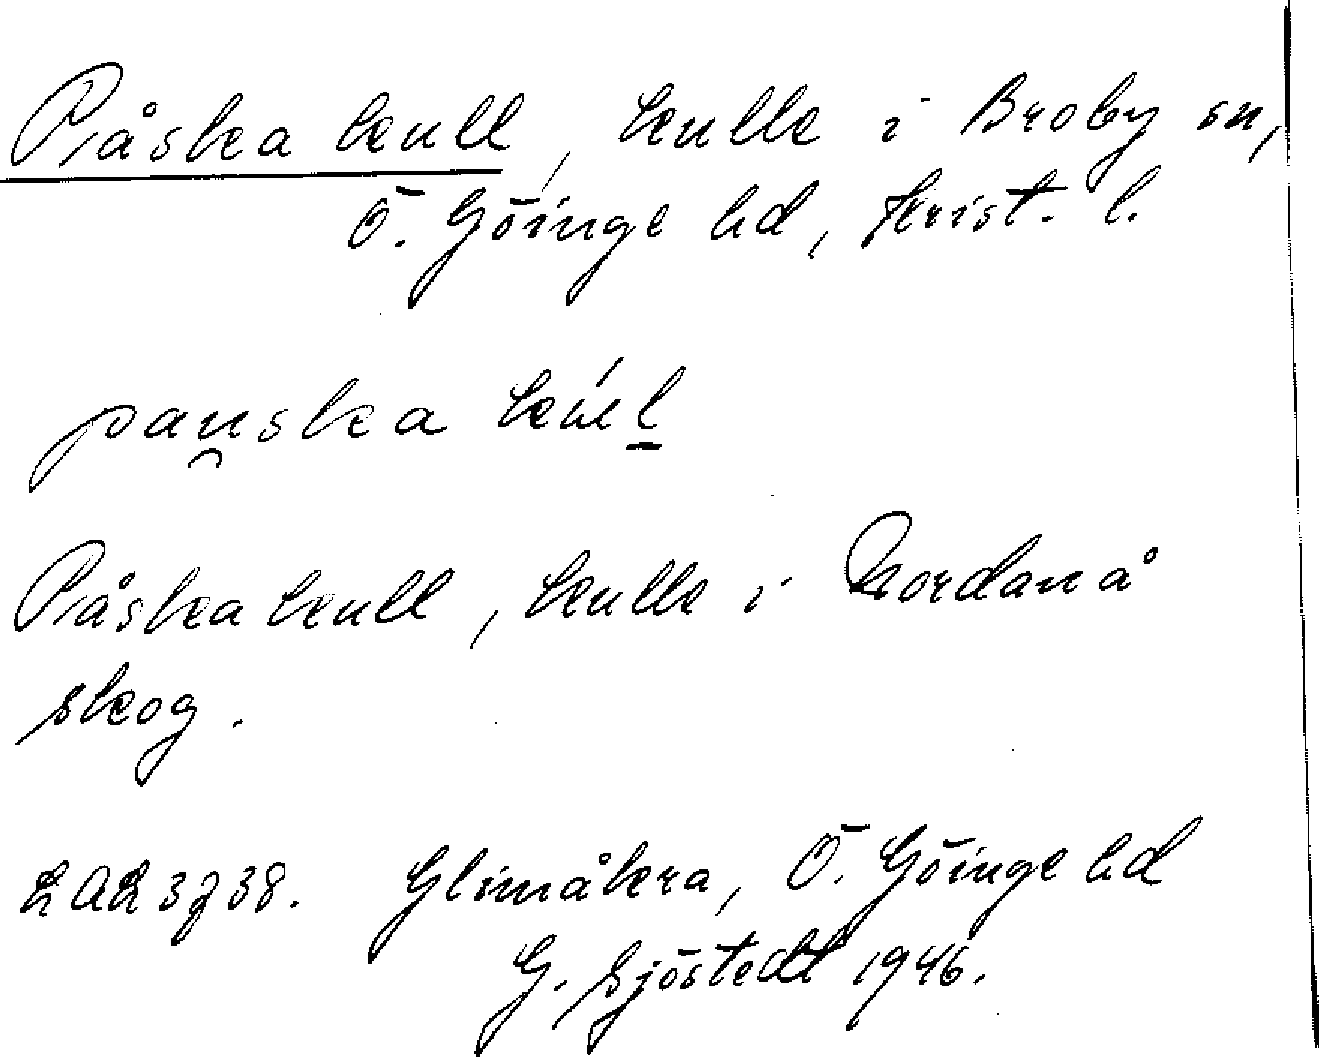 Påska kull, kulle i Broby sn,
Ö. Göinge hd, Krist. l.
pau̯ska kúl̲
Påska kull, kulle i Nordanå
skog.
LAL 3738. Glimåkra, Ö. Göinge hd
G. Sjöstedt 1946.